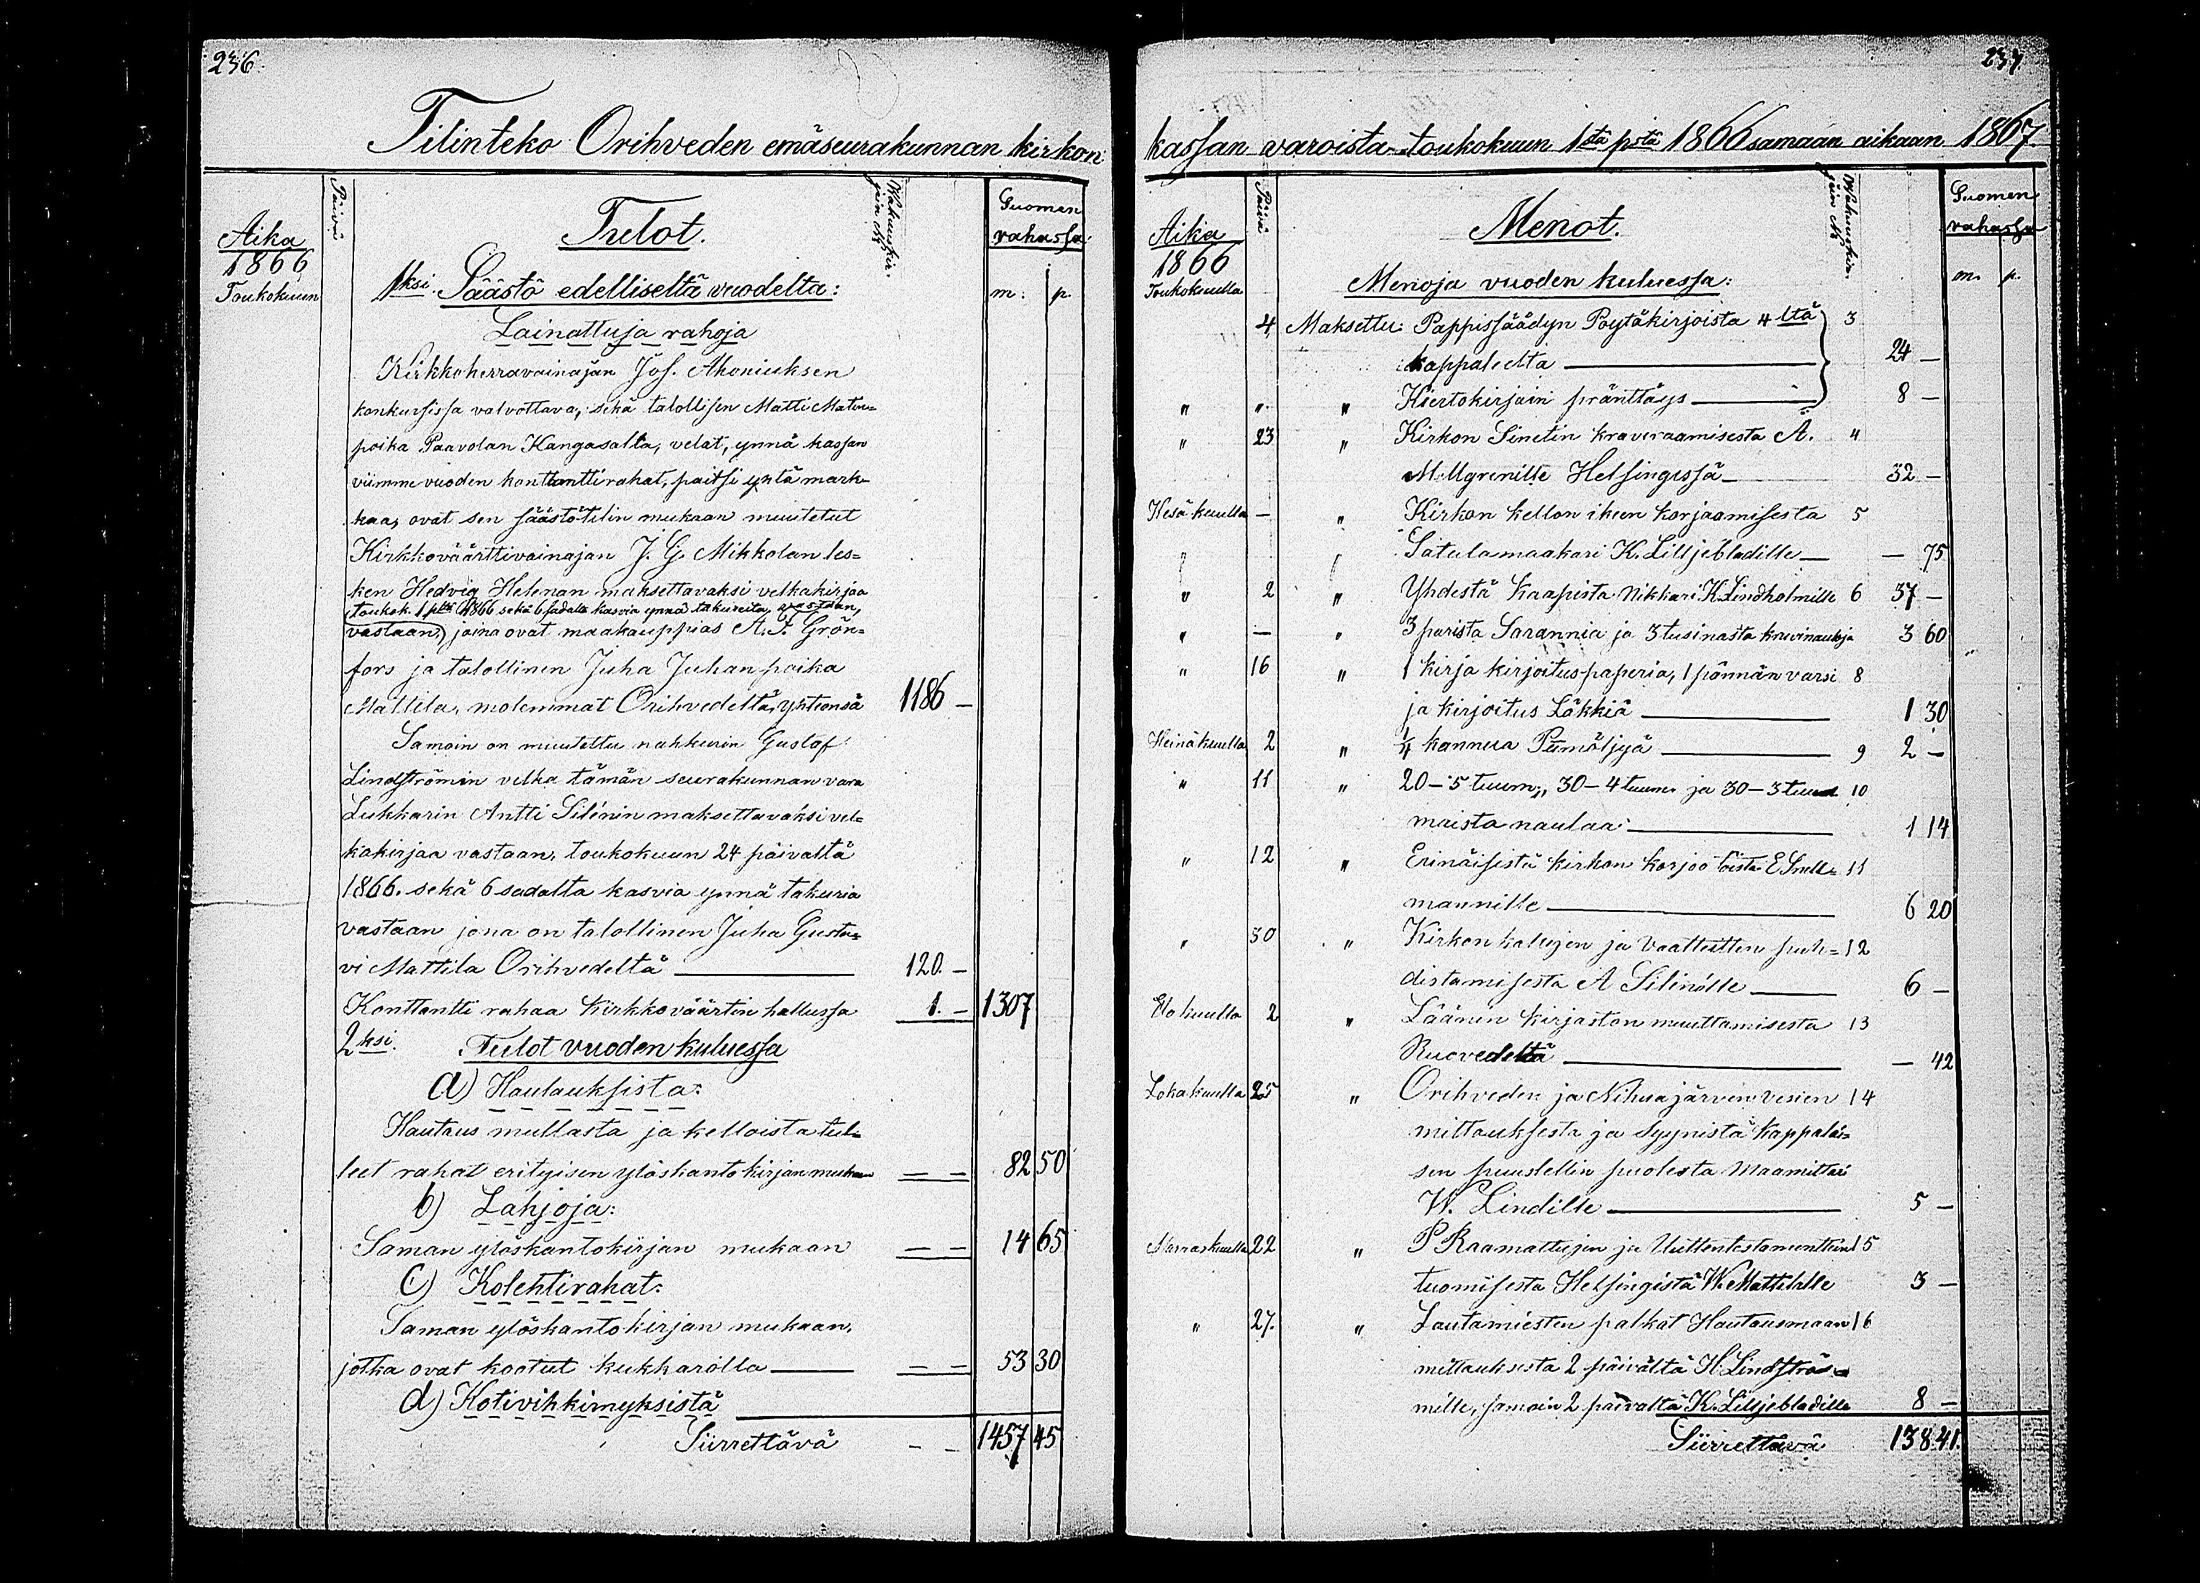 236.
Tilinteko Orihveden emäseurakunnan kirkon
Päivä
Tulot.
Wakuuskir-
jain №
Suomen
rahassa
Aika
1866
Toukokuun
m. p.
1ksi. Säästö edelliseltä vuodelta:
Lainattuja rahoja
Kirkkoherravainajan Jos. Ahoniuksen
konkurssissa valvottava, sekä talollisen Matti Matin-
poika Paavolan Kangasalta, velat, ynnä kassan
viimme vuoden konttanttirahat, paitsi yhtä mark-
kaa, ovat sen säästötilin mukaan muutetut
Kirkkoväärttivainajan J. G. Mikkolan les-
ken Hedvig Helenan maksettavaksi velkakirjaa
toukok. 1 pltä 1866 sekä 6 sadalta kasvia ynnä takuuita vastaan,
vastaan, joina ovat maakauppias A. J. Grön-
fors ja talollinen Juha Juhanpoika
Mattila, molemmat Orihvedeltä, yhteensä 1186 —
Samoin on muutettu nahkurin Gustaf
Lindströmin velka tämän seurakunnan vara
Lukkarin Antti Silénin maksettavaksi vel-
kakirjaa vastaan, toukokuun 24 päivältä
1866. sekä 6 sadalta kasvia ynnä takuria
vastaan jona on talollinen Juha Gusta-
vi Mattila Orihvedeltä — 120. —
Konttantti rahaa Kirkkoväärtin hallussa 1. — 1307
2ksi. Tulot vuoden kuluessa
a) Haulauksista:
Hautaus mullasta ja kelloista tul-
leet rahat erityisen ylöskantokirjan mukaan — — 82 50
b) Lahjoja:
Saman ylöskantokirjan mukaan — — 14 65
C) Kolehtirahat:
Saman ylöskantokirjan mukaan,
jotka ovat kootut kukkarolla — — — 53 30
d) Kotivihkimyksistä
Siirrettävä — — 1457 45
237.
kassan varoista toukokuun 1stä pstä 1866 samaan aikaan 1867.
Päivä
Menot.
Wakuuskir-
jain №
Suomen
rahassa
Aika
1866
Toukokuulla
m. p.
Menoja vuoden kuluessa:
4 Maksettu: Pappissäädyn Pöytäkirjoista 4 ltä 3
kappaleelta — 24 —
" " " Kiertokirjain pränttäys — 8 —
" 23 " Kirkon Sinetin kraveraamisesta A. 4
Mellgrenille Helsingissä — 32 —
Kesäkuulla — " Kirkon kellon ikeen korjaamisesta 5
Satulamaakari K. Lilljebladille — — 75
" 2 " Yhdestä Kaapista Nikkari K. Lindholmille 6 37 —
" — " 3 parista Sarannia ja 3 tusinasta kruvinauloja 3 60
" 16 " 1 kirja kirjoituspaperia, 1 pännän varsi 8
ja kirjoitus Läkkiä — 1 30
Heinäkuulla 2 " ¼ kannua Pumöljyä — 9 2 —
" 11 " 20-5 tuum., 30-4 tuum. ja 30-3 tuu 10
maista naulaa: — 1 14
" 12 " Erinäisistä kirkon korjoo töistä E Snell- 11
mannille — 6 20
" 30 " Kirkon kalujen ja Vaatteitten puh- 12
distamisesta A Silénille — 6 —
Elokuulla 2 " Läänin kirjaston muuttamisesta 13
Ruovedeltä — — 42
Lokakuulla 25 " Orihveden ja Nihuajärven vesien 14
mittauksesta ja syynistä kappalai-
sen puustellin puolesta Maamittari
W. Lindille — 5 —
Marraskuulla 22 " P Raamattujen ja Uuttentestamenttein 15
tuomisesta Helsingistä W. Mattilalle 3 —
" 27. " Lautamiesten palkat Hautausmaan 16
mittauksesta 2 päivältä H. Lindströ-
mille, samoin 2 päivältä K. Liljebladille 8 —
Siirrettävä 138 41.